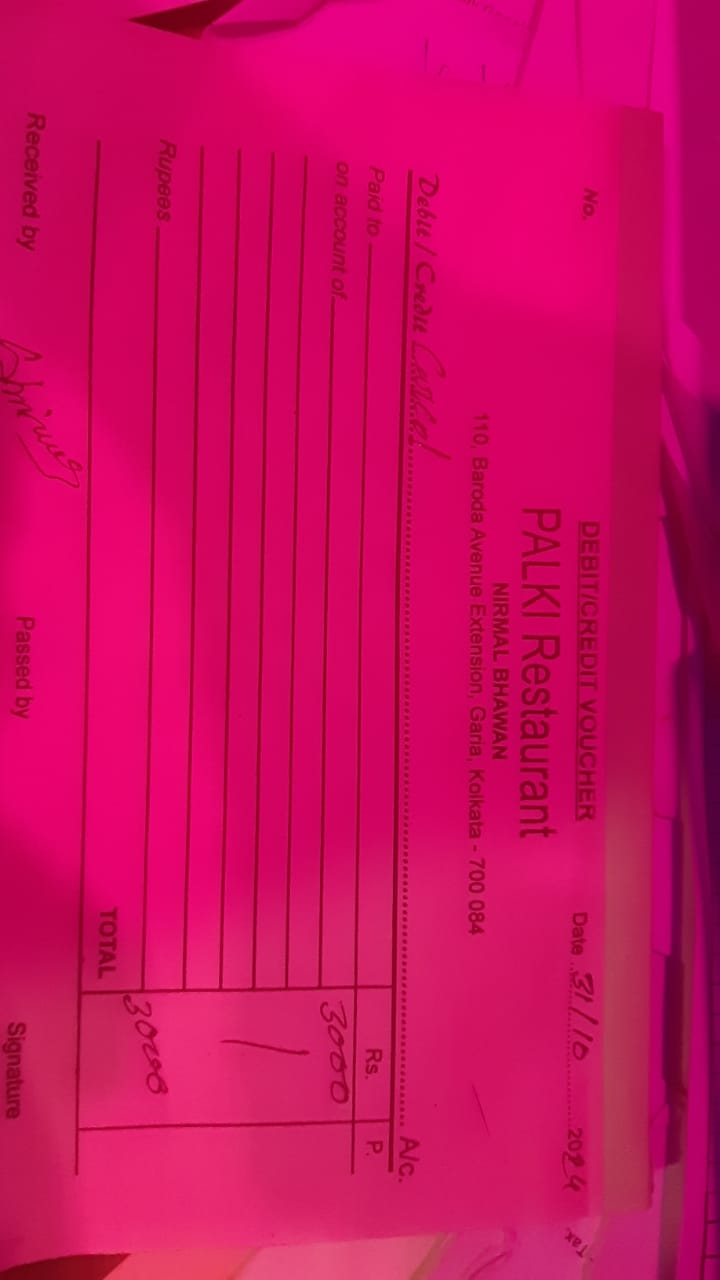 No.
DEBIT/CREDIT VOUCHER
Date 31/10 2024
PALKI Restaurant
NIRMAL BHAWAN
110, Baroda Avenue Extension, Garia, Kolkata - 700 084
Debit / Credit A/c.
Paid to Rs. P.
on account of 3000
Rupees
TOTAL 3000
Received by Passed by Signature
Tax.